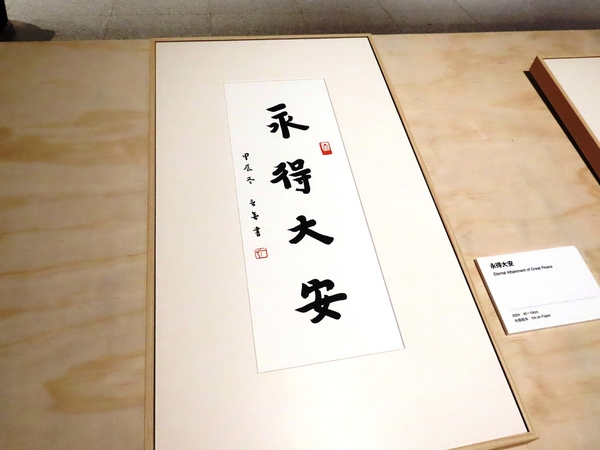 永得大安
甲辰冬
書
永得大安
Eternal Attainment of Great Peace
2024
水墨紙本 Ink on Paper